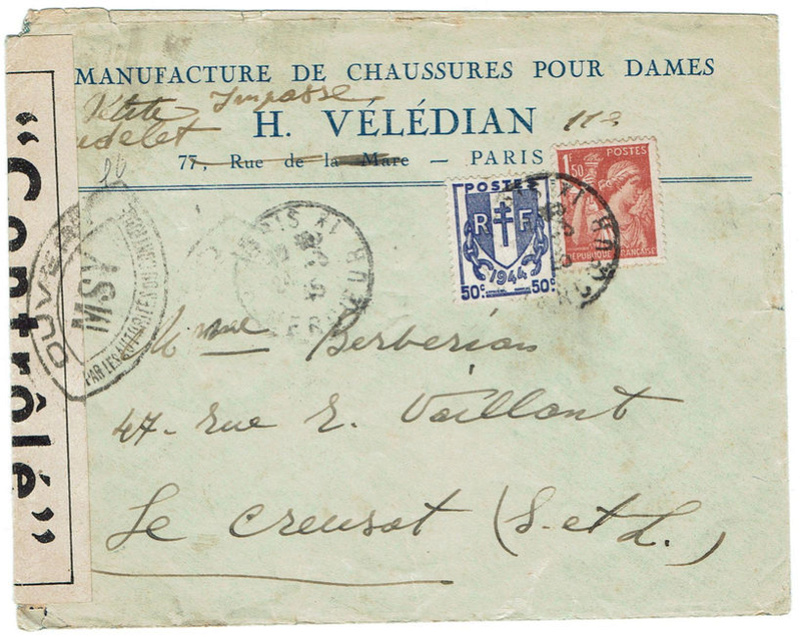 MANUFACTURE DE CHAUSSURES POUR DAMES
Petite Impasse
H. VÉLÉDIAN 11e
77, Rue de la Mare — PARIS
26
POSTES
R F
1944
50c 50c
1F50 POSTES
RÉPUBLIQUE FRANÇAISE
"Contrôlé"
OUVERT
MSY
PAR LES AUTORITÉS
PARIS XI
Mme Berberian
47- rue E. Vaillant
Le Creusot (S. et L.)